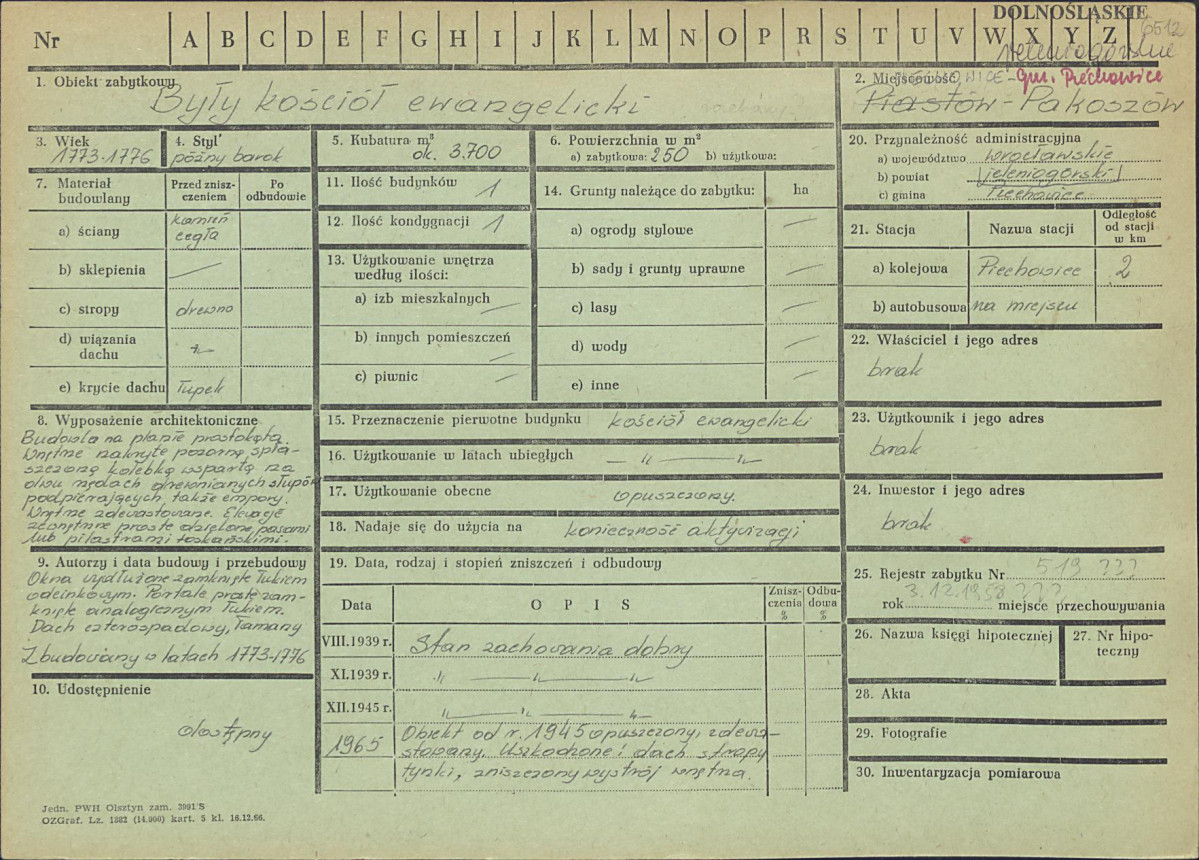 DOLNOŚLĄSKIE
6512
Nr A B C D E F G H I J K L M N O P R S T U V W X Y Z
jeleniogórskie
1. Obiekt zabytkowy
Były kościół ewangelicki
2. Miejscowość
gm. Piechowice
Piastów - Pakoszów
3. Wiek
1773-1776
4. Styl
późny barok
5. Kubatura m³
ok. 3.700
6. Powierzchnia w m²
a) zabytkowa: 250 b) użytkowa:
7. Materiał budowlany
Przed zniszczeniem
Po odbudowie
a) ściany
kamień
cegła
b) sklepienia —
c) stropy drewno
d) wiązania dachu -"-
e) krycie dachu łupek
11. Ilość budynków 1
12. Ilość kondygnacji 1
13. Użytkowanie wnętrza
według ilości:
a) izb mieszkalnych —
b) innych pomieszczeń —
c) piwnic —
14. Grunty należące do zabytku: ha
a) ogrody stylowe —
b) sady i grunty uprawne —
c) lasy —
d) wody —
e) inne —
8. Wyposażenie architektoniczne
Budowla na planie prostokąta.
Wnętrze nakryte pozorną, spła-
szczoną kolebką wspartą na
dwu rzędach drewnianych słupów
podpierających także empory.
Wnętrze zdewastowane. Elewacje
zewnętrzne proste dzielone pasami
lub pilastrami toskańskimi.
9. Autorzy i data budowy i przebudowy
Okna wydłużone zamknięte łukiem
odcinkowym. Portale proste zam-
knięte analogicznym łukiem.
Dach czterospadowy, łamany
Zbudowany w latach 1773-1776
10. Udostępnienie
dostępny
15. Przeznaczenie pierwotne budynku kościół ewangelicki
16. Użytkowanie w latach ubiegłych — " — " —
17. Użytkowanie obecne opuszczony.
18. Nadaje się do użycia na konieczność aktywizacji
19. Data, rodzaj i stopień zniszczeń i odbudowy
Data
O P I S
Zniszczenia %
Odbudowa %
VIII.1939 r. Stan zachowania dobry
XI.1939 r. " — " — "
XII.1945 r. " — " — "
1965 Obiekt od r. 1945 opuszczony, zdewa-
stowany. Uszkodzone: dach stropy
tynki, zniszczony wystrój wnętrza.
20. Przynależność administracyjna
a) województwo wrocławskie
b) powiat jeleniogórski
c) gmina Piechowice
21. Stacja
Nazwa stacji
Odległość od stacji w km
a) kolejowa Piechowice 2
b) autobusowa na miejscu
22. Właściciel i jego adres
brak
23. Użytkownik i jego adres
brak
24. Inwestor i jego adres
brak
25. Rejestr zabytku Nr 519 ???
3.12.1958 ???
rok miejsce przechowywania
26. Nazwa księgi hipotecznej
27. Nr hipo-
teczny
28. Akta
29. Fotografie
30. Inwentaryzacja pomiarowa
Jedn. PWH Olsztyn zam. 3991/S
OZGraf. Lz. 1882 (14.000) kart. 5 kl. 16.12.66.